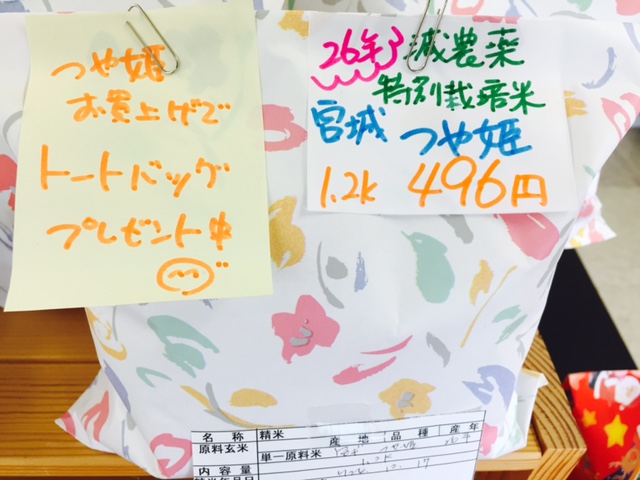 つや姫
お買上げで
トートバッグ
プレゼント中
26年 減農薬
特別栽培米
宮城 つや姫
1.2K 496円
名称 精米
原料玄米 産地 品種 産年
単一原料米 宮城 つや姫 26年
内容量 1.2K